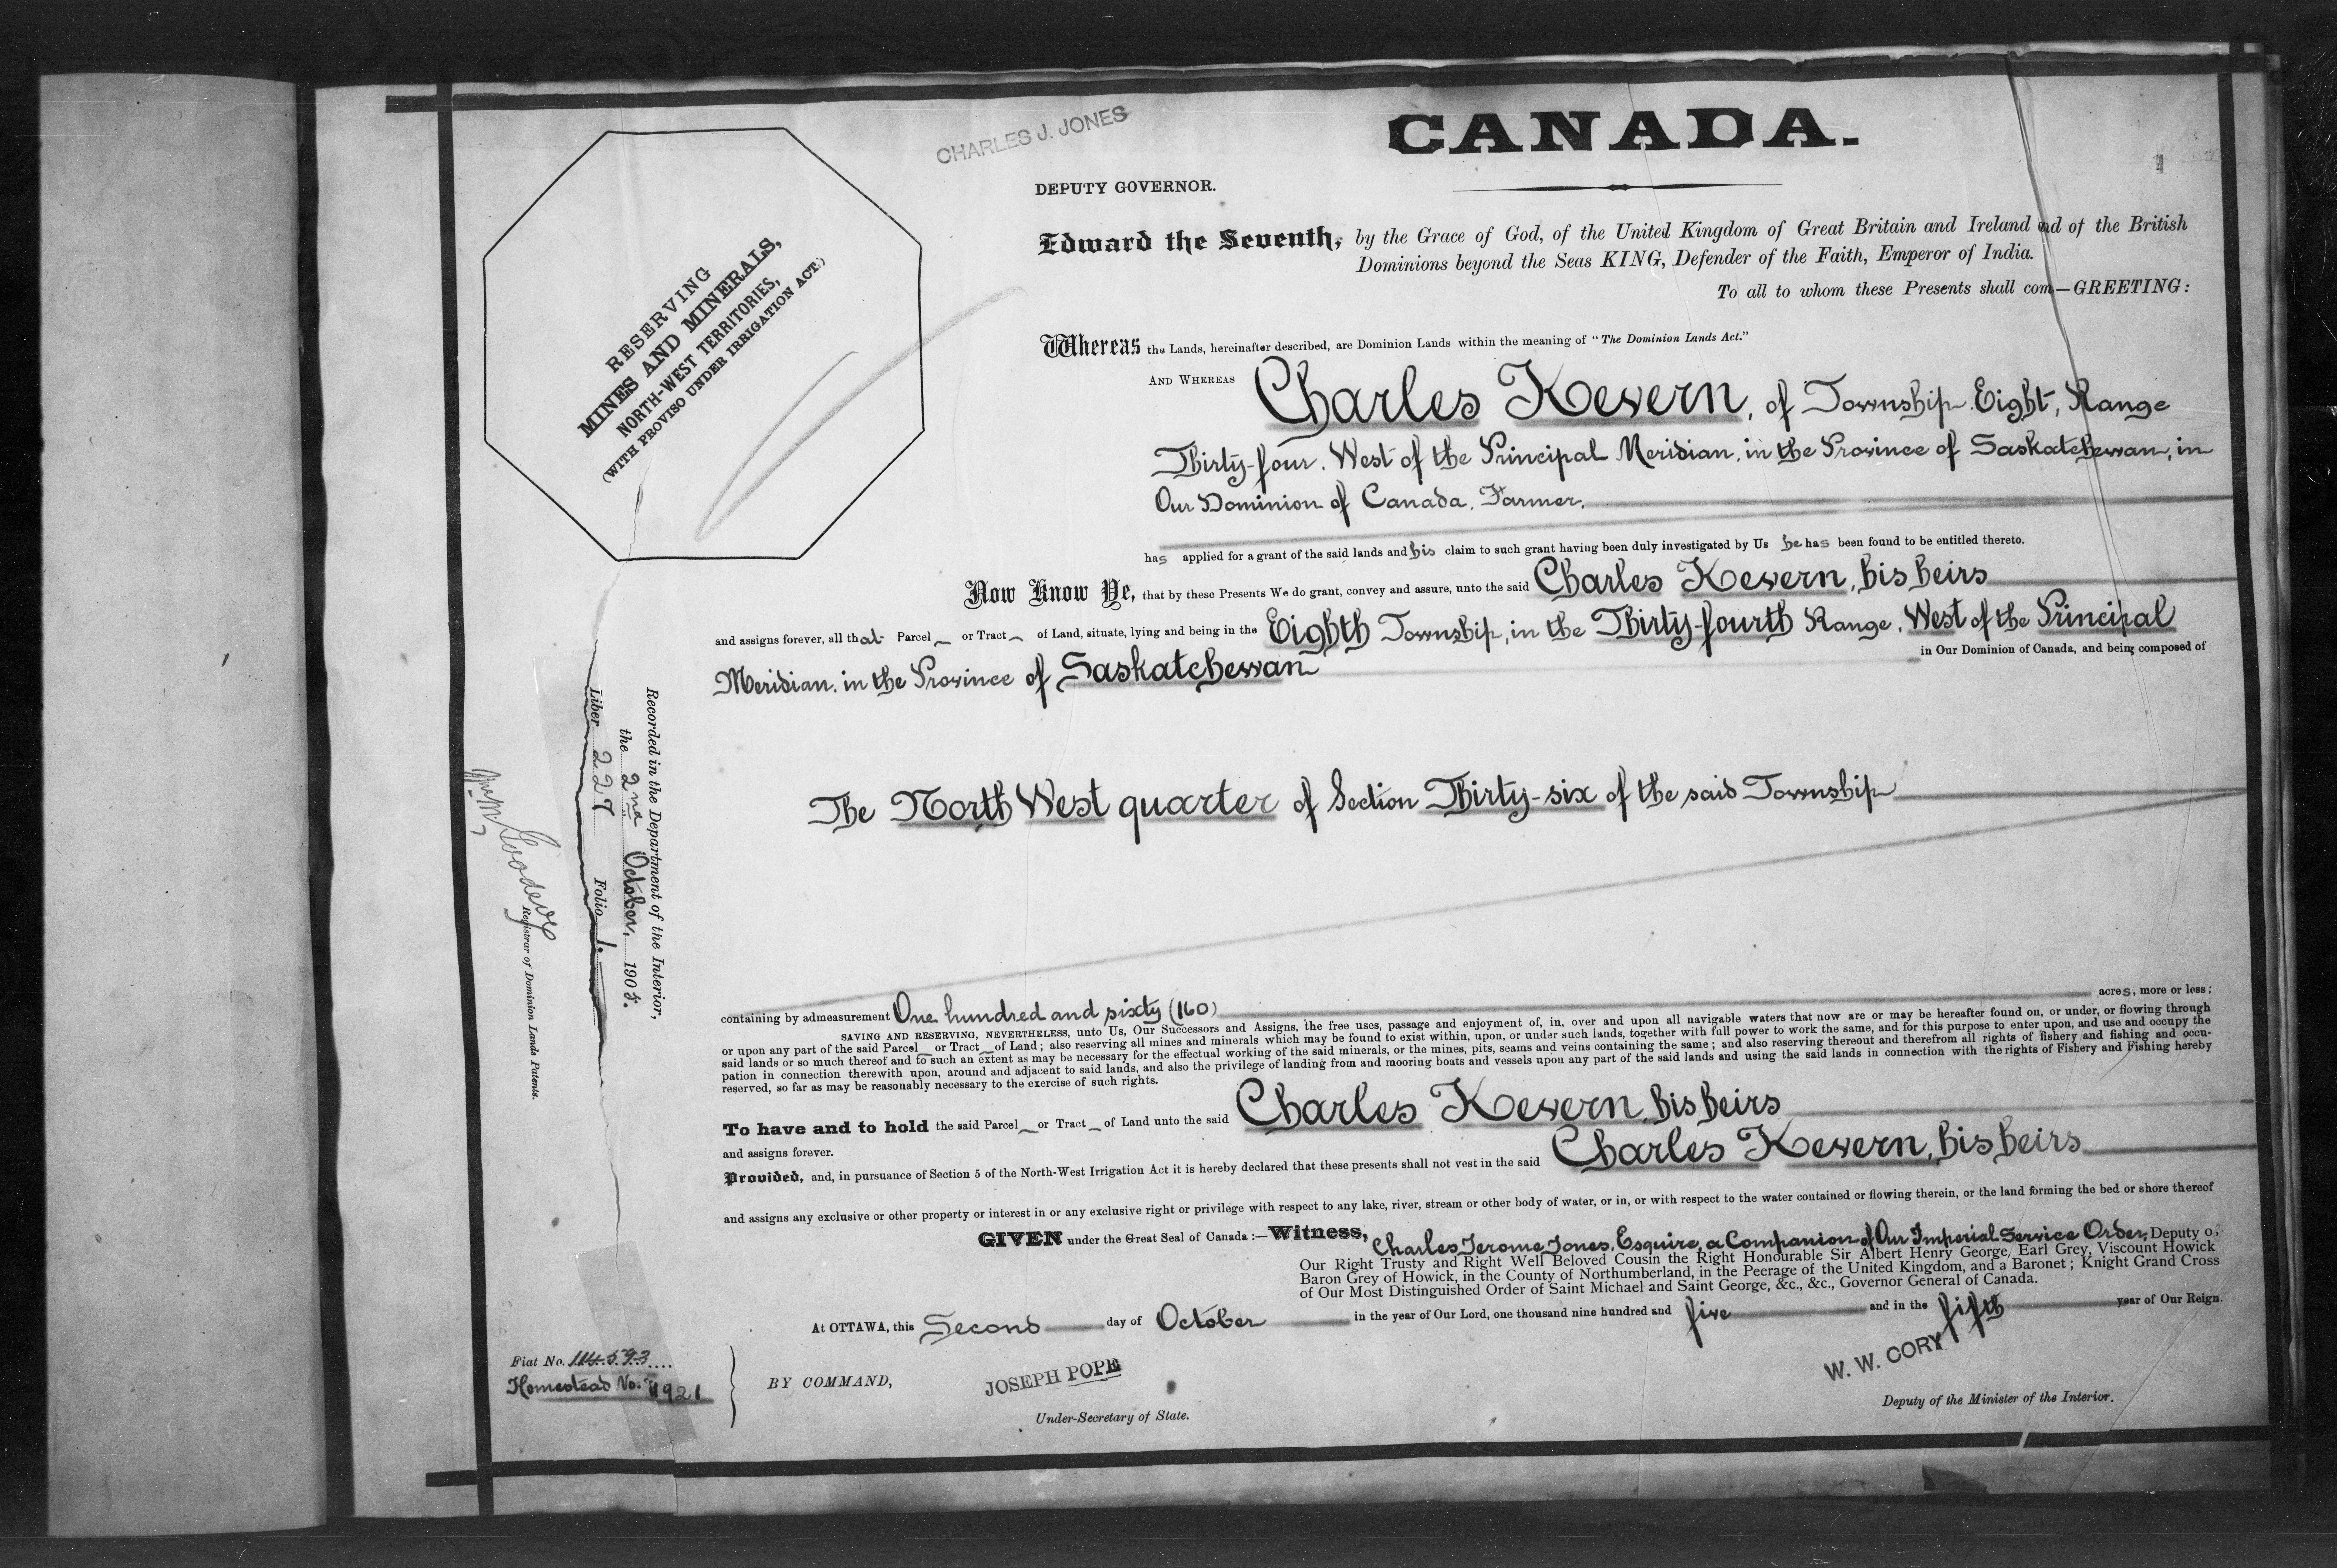 CHARLES J. JONES
CANADA.
DEPUTY GOVERNOR.
Edward the Seventh, by the Grace of God, of the United Kingdom of Great Britain and Ireland nd of the British
Dominions beyond the Seas KING, Defender of the Faith, Emperor of India.
To all to whom these Presents shall com—GREETING:
RESERVING
MINES AND MINERALS,
NORTH-WEST TERRITORIES,
(WITH PROVISO UNDER IRRIGATION ACT.)
Whereas the Lands, hereinafter described, are Dominion Lands within the meaning of "The Dominion Lands Act."
AND WHEREAS Charles Kevern, of Township Eight, Range
Thirty-four, West of the Principal Meridian, in the Province of Saskatchewan, in
Our Dominion of Canada, Farmer,
has applied for a grant of the said lands and his claim to such grant having been duly investigated by Us he has been found to be entitled thereto.
Now Know Ye, that by these Presents We do grant, convey and assure, unto the said Charles Kevern, his heirs
and assigns forever, all that Parcel or Tract of Land, situate, lying and being in the Eighth Township, in the Thirty-fourth Range, West of the Principal
Meridian, in the Province of Saskatchewan in Our Dominion of Canada, and being composed of
The North West quarter of Section Thirty-six of the said Township
containing by admeasurement One hundred and sixty (160) acres, more or less;
SAVING AND RESERVING, NEVERTHELESS, unto Us, Our Successors and Assigns, the free uses, passage and enjoyment of, in, over and upon all navigable waters that now are or may be hereafter found on, or under, or flowing through
or upon any part of the said Parcel or Tract of Land; also reserving all mines and minerals which may be found to exist within, upon, or under such lands, together with full power to work the same, and for this purpose to enter upon, and use and occupy the
said lands or so much thereof and to such an extent as may be necessary for the effectual working of the said minerals, or the mines, pits, seams and veins containing the same; and also reserving thereout and therefrom all rights of fishery and fishing and occu-
pation in connection therewith upon, around and adjacent to said lands, and also the privilege of landing from and mooring boats and vessels upon any part of the said lands and using the said lands in connection with the rights of Fishery and Fishing hereby
reserved, so far as may be reasonably necessary to the exercise of such rights.
To have and to hold the said Parcel or Tract of Land unto the said Charles Kevern, his heirs
and assigns forever.
Provided, and, in pursuance of Section 5 of the North-West Irrigation Act it is hereby declared that these presents shall not vest in the said Charles Kevern, his heirs
and assigns any exclusive or other property or interest in or any exclusive right or privilege with respect to any lake, river, stream or other body of water, or in, or with respect to the water contained or flowing therein, or the land forming the bed or shore thereof
GIVEN under the Great Seal of Canada:—Witness, Charles Jerome Jones, Esquire, a Companion of Our Imperial Service Order, Deputy o,
Our Right Trusty and Right Well Beloved Cousin the Right Honourable Sir Albert Henry George, Earl Grey, Viscount Howick
Baron Grey of Howick, in the County of Northumberland, in the Peerage of the United Kingdom, and a Baronet; Knight Grand Cross
of Our Most Distinguished Order of Saint Michael and Saint George, &c., &c., Governor General of Canada.
At OTTAWA, this Second day of October in the year of Our Lord, one thousand nine hundred and five and in the fifth year of Our Reign.
Fiat No. 114593
Homestead No. 4921
BY COMMAND,
JOSEPH POPE
Under-Secretary of State.
W. W. CORY
Deputy of the Minister of the Interior.
Recorded in the Department of the Interior,
the 2nd October, 1905.
Liber 227 Folio 1.
Goodeve
Registrar of Dominion Lands Patents.